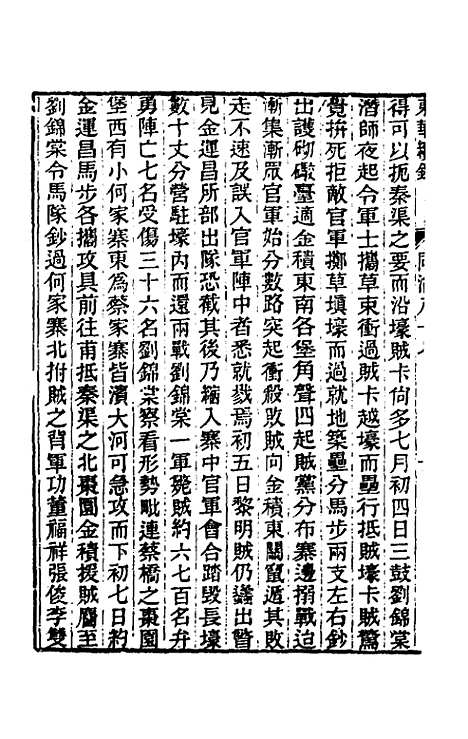 東華續錄　同治八十七
得可以扼秦渠之要而沿壕賊卡尙多七月初四日三鼓劉錦棠
潛師夜起令軍士攜草束衝過賊卡越壕而壘行抵賊壕卡賊驚
覺拚死拒敵官軍擲草塡壕而過就地築壘分馬步兩支左右鈔
出護砌礮臺適金積東南各堡角聲四起賊黨分布寨邊搦戰迫
漸集漸眾官軍始分數路突起衝殺敗賊向金積東關竄遁其敗
走不速及誤入官軍陣中者悉就戮焉初五日黎明賊仍蠭出瞥
見金運昌所部出隊恐截其後乃縮入寨中官軍會合踏毀長壕
數十丈分營駐壕內而還兩戰劉錦棠一軍斃賊約六七百名弁
勇陣亡七名受傷三十六名劉錦棠察看形勢毗連蔡橋之棗園
堡西有小何家寨東為蔡家寨皆濱大河可急攻而下初七日約
金運昌馬步各攜攻具前往甫抵秦渠之北棗園金積援賊麕至
劉錦棠令馬隊鈔過何家寨北拊賊之背軍功董福祥張俊李雙